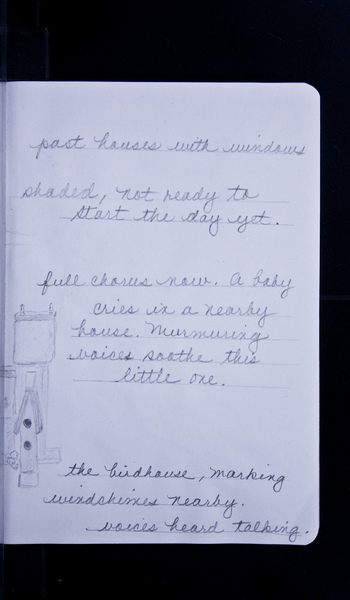 past houses with windows
shaded, not ready to
start the day yet.
full chorus now. A baby
cries in a nearby
house. Murmuring
voices soothe this
little one.
the birdhouse, marking
windchimes nearby.
voices heard talking.